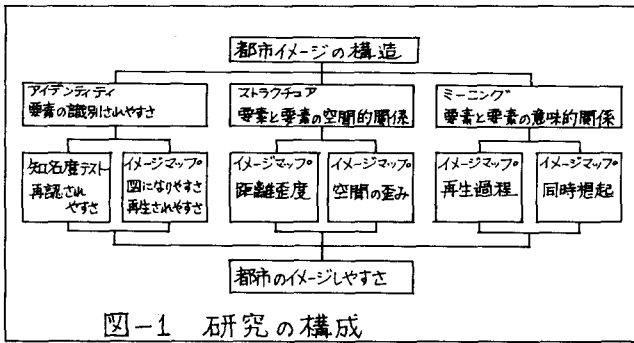 都市イメージの構造
アイデンティティ
要素の識別されやすさ
ストラクチュア
要素と要素の空間的関係
ミーニング
要素と要素の意味的関係
知名度テスト
再認され
やすさ
イメージマップ
図になりやすさ
再生されやすさ
イメージマップ
距離歪度
イメージマップ
空間の歪み
イメージマップ
再生過程
イメージマップ
同時想起
都市のイメージしやすさ
図-1 研究の構成